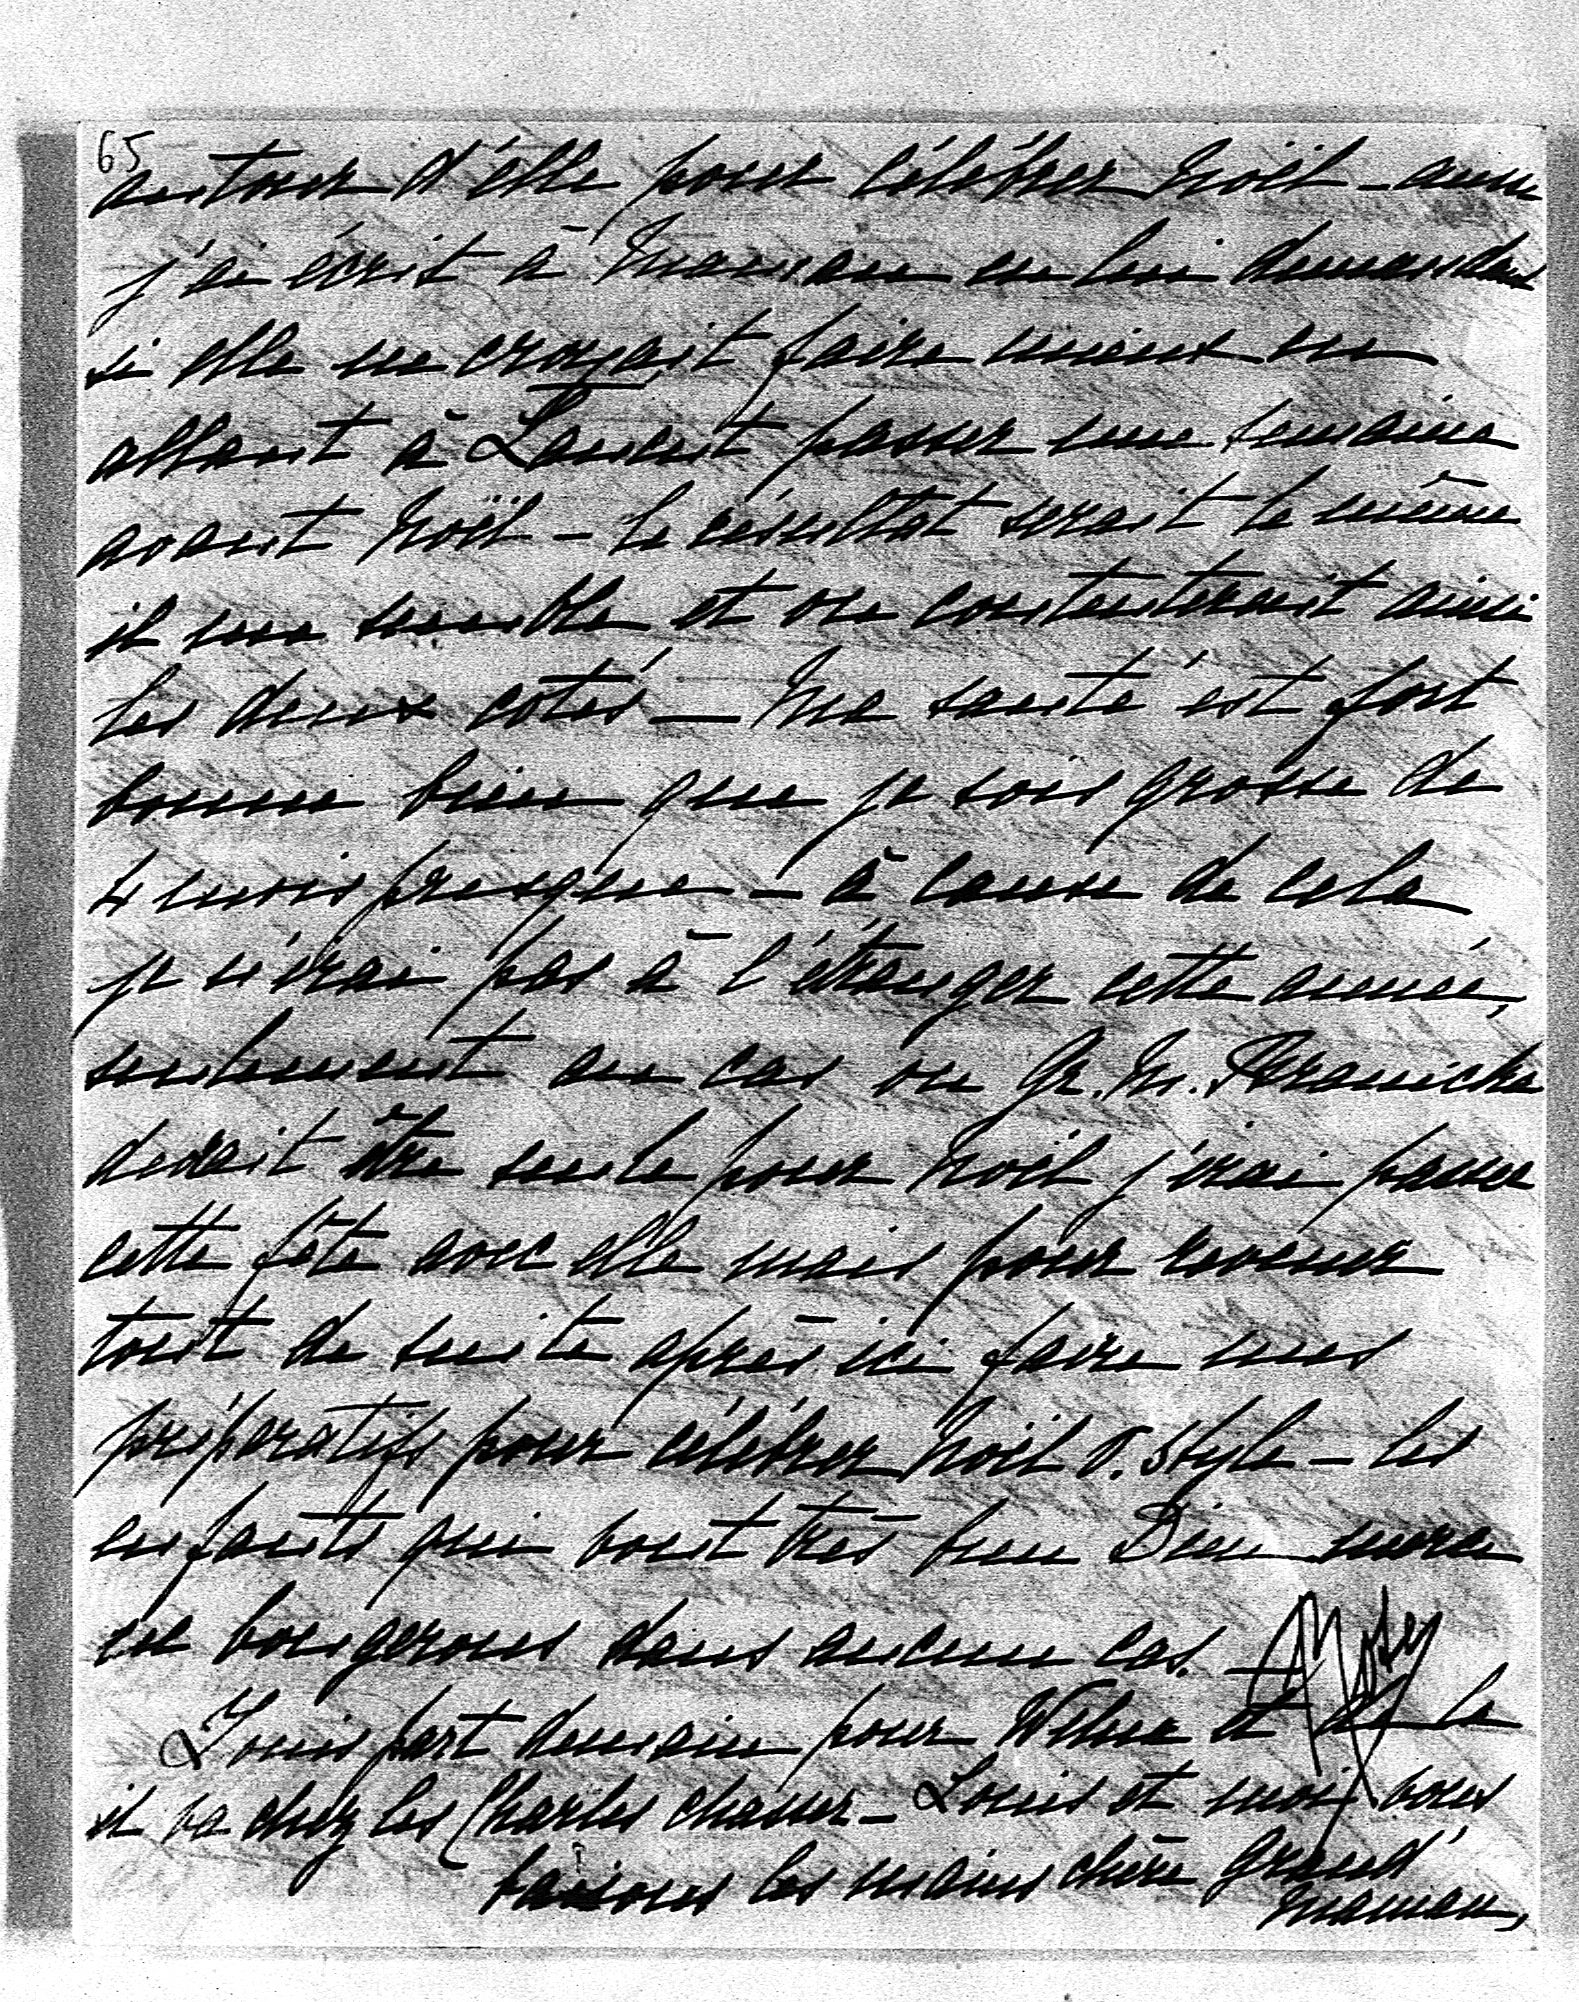 65
autour d'elle pour célébrer Noël – aussi
j'ai écrit à Maman en lui demandant
si elle ne croyait faire mieux en
allant à Lancut passer une semaine
avant Noël – le résultat serait le même
il me semble et on contenterait ainsi
les deux cotés – Ma santé est fort
bonne bien que je sois grosse de
4 mois presque – à cause de cela
je n'irai pas à l'étranger cette année,
seulement au cas ou Gr. M. Branicka
devait être seule pour Noël j'irai passer
cette fête avec elle mais pour revenir
tout de suite après ici faire mes
préparatifs pour célébrer Noël v. style – les
enfants qui vont très bien Dieu merci
ne bougerons dans aucun cas. –
Louis part demain pour Wilna et de la
il va chez les Charles chasser – Louis et moi vous
baisons les mains chère Grand'
maman,